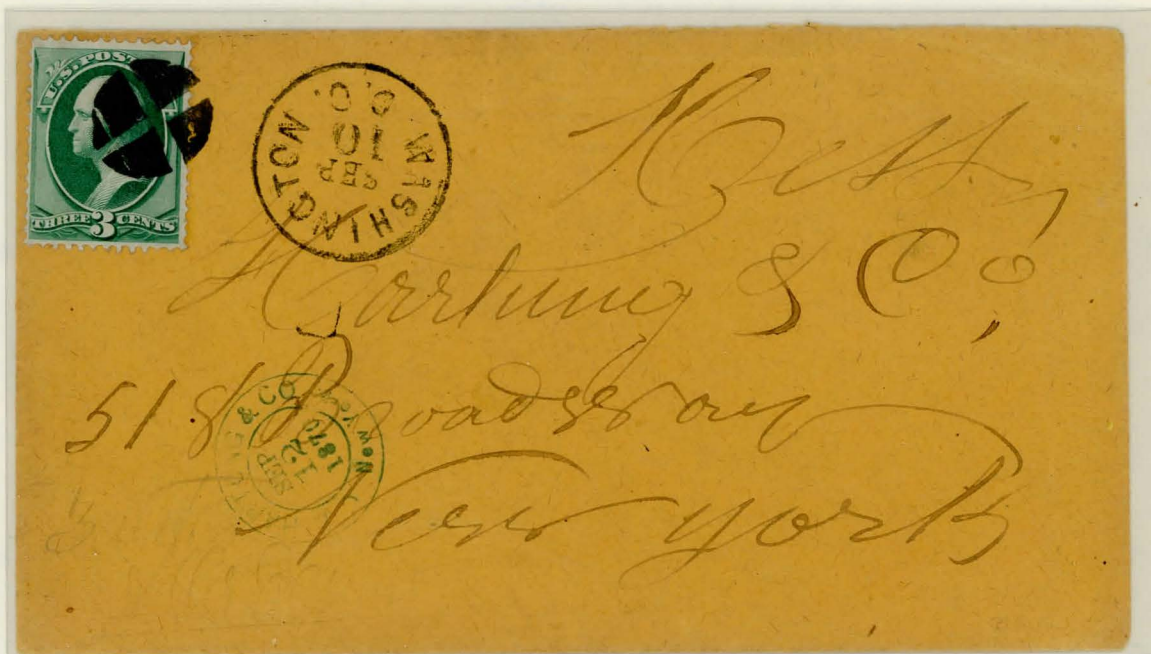 U.S. POST
THREE 3 CENTS
WASHINGTON D.C.
SEP
10
Hess,
Hartung & Co.
518 Broadway
New York
& CO
NEW YORK
SEP
12
1870